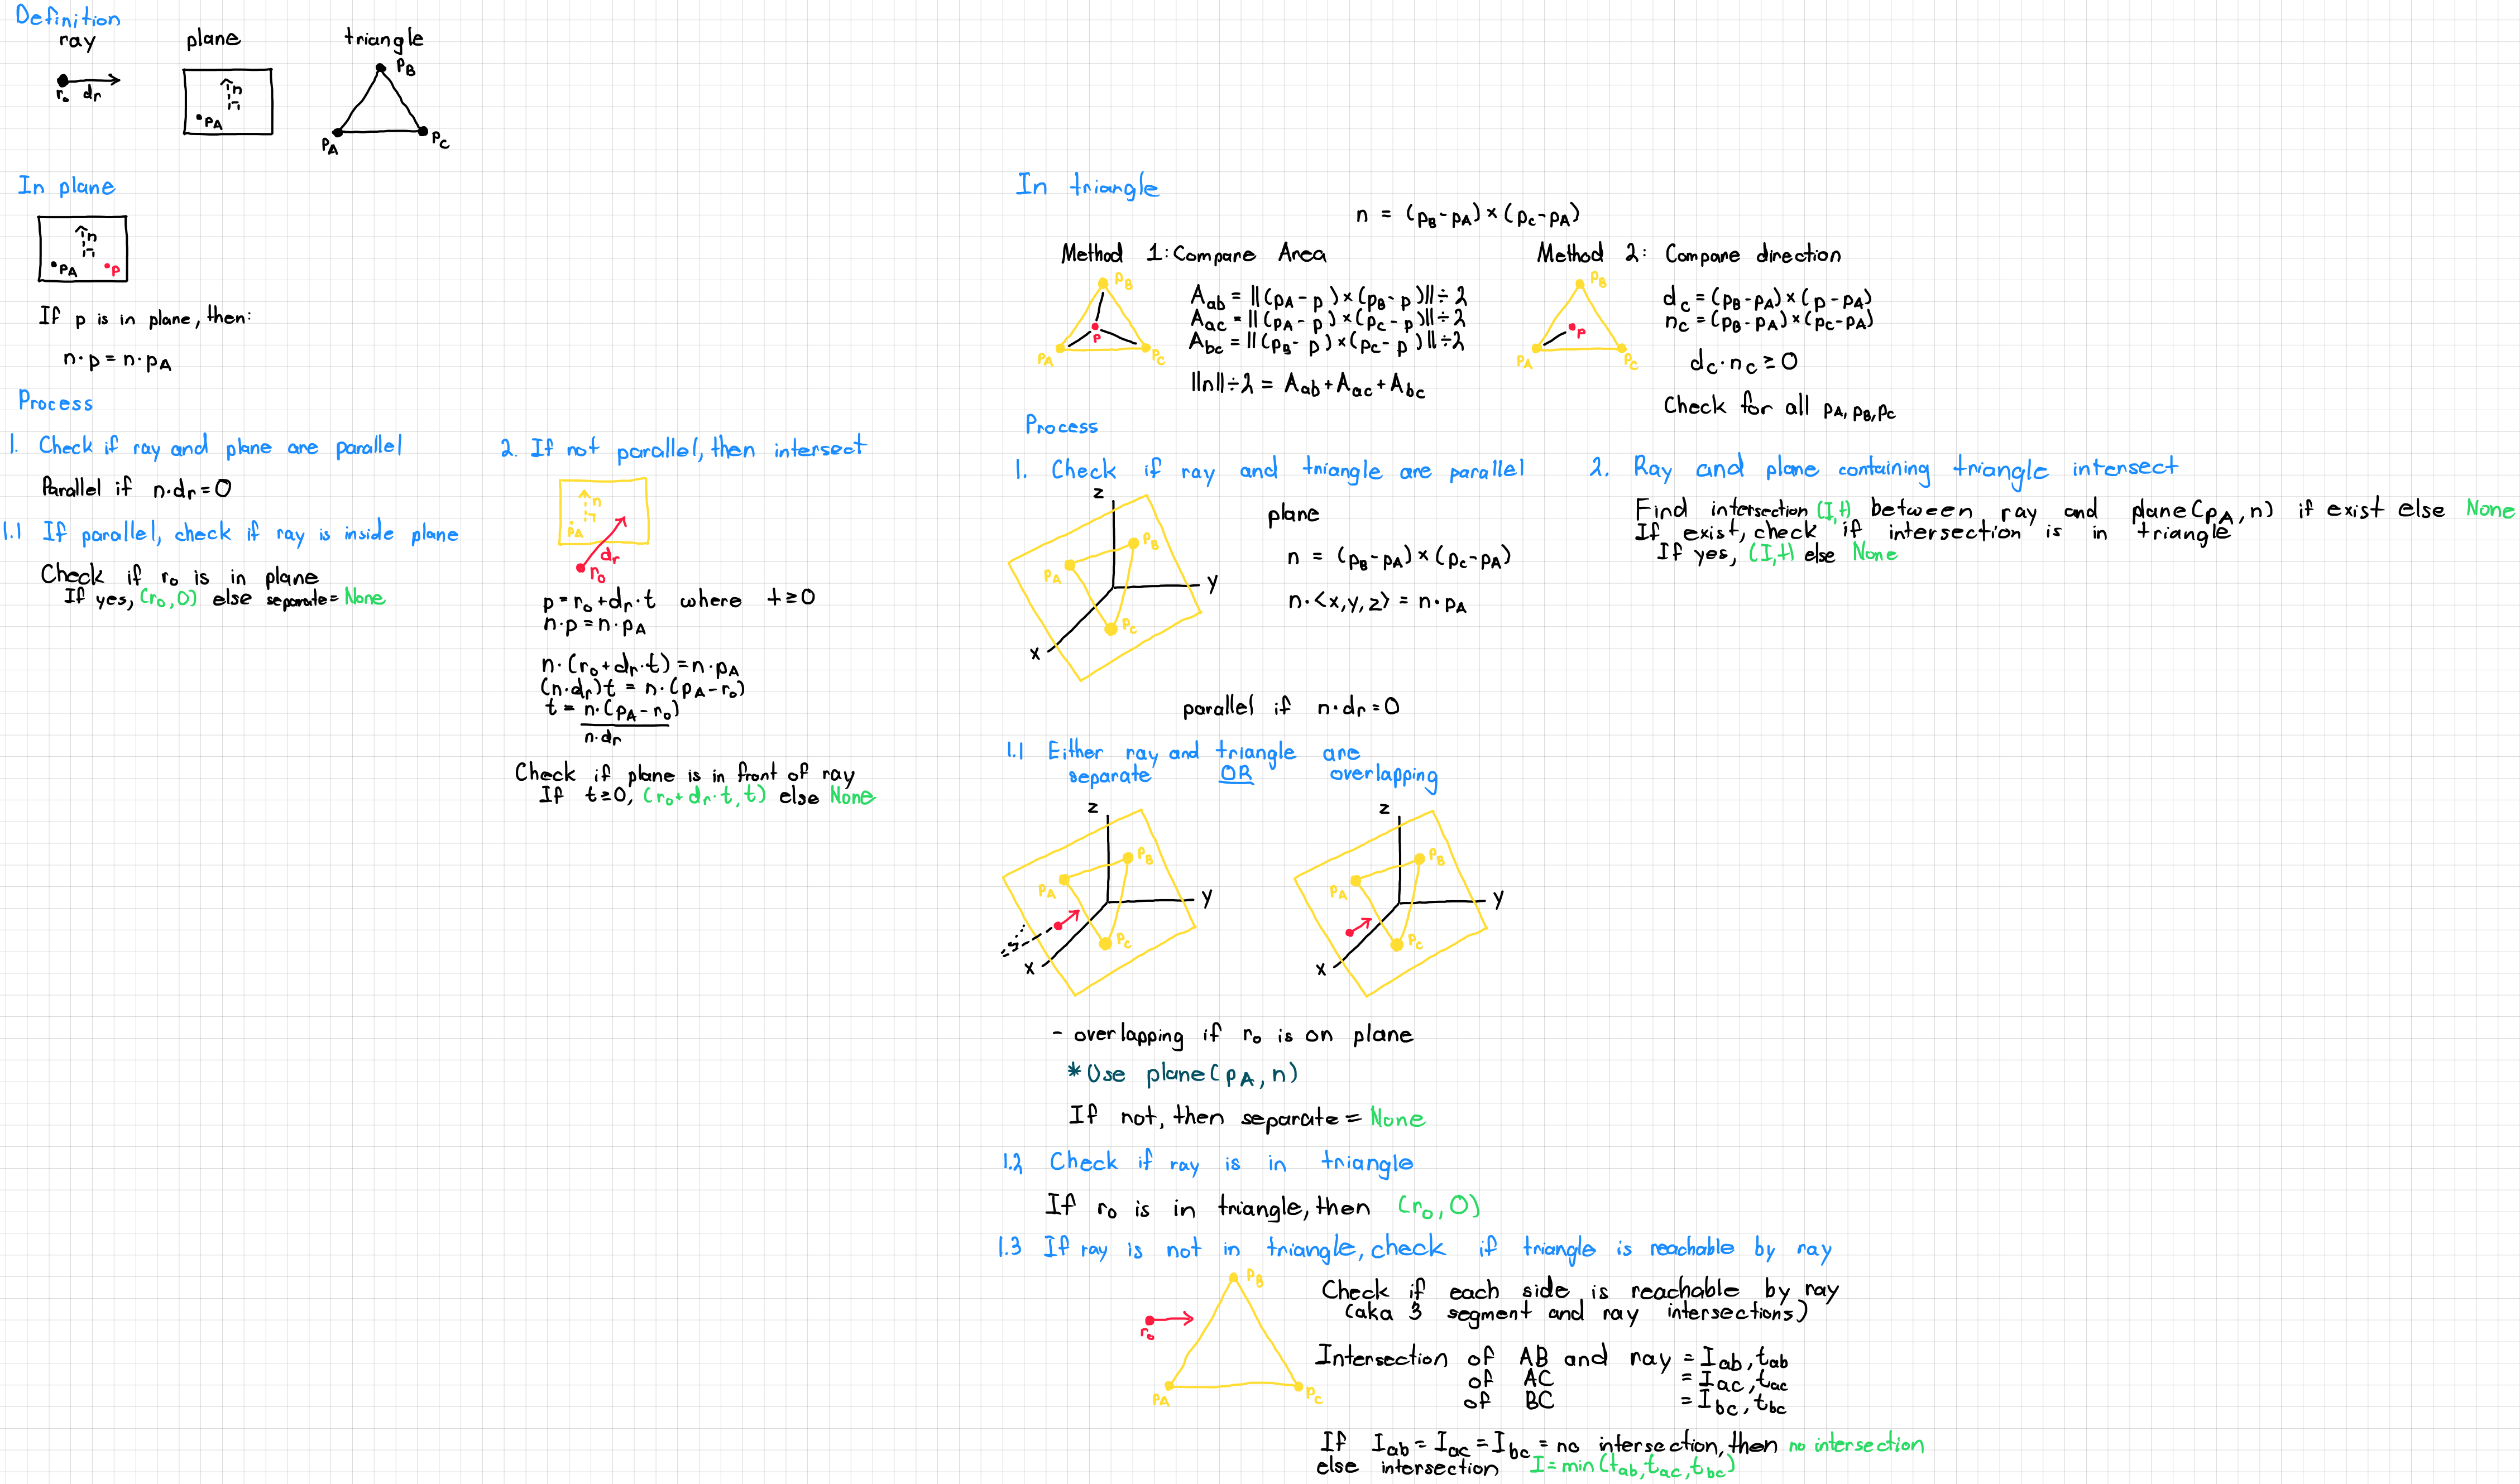 Definition
ray
plane
triangle
r₀ dᵣ
n
p_A
p_B
p_A
p_C
In plane
n
p_A
p
If p is in plane, then:
n·p = n·p_A
Process
1. Check if ray and plane are parallel
Parallel if n·dᵣ = 0
1.1 If parallel, check if ray is inside plane
Check if r₀ is in plane
If yes, (r₀, 0) else separate = None
2. If not parallel, then intersect
n
p_A
dᵣ
r₀
p = r₀ + dᵣ·t where t ≥ 0
n·p = n·p_A
n·(r₀ + dᵣ·t) = n·p_A
(n·dᵣ)t = n·(p_A - r₀)
t = n·(p_A - r₀)
n·dᵣ
Check if plane is in front of ray
If t ≥ 0, (r₀ + dᵣ·t, t) else None
In triangle
n = (p_B - p_A) × (p_C - p_A)
Method 1: Compare Area
p_B
p
p_A
p_C
A_ab = ||(p_A - p) × (p_B - p)|| ÷ 2
A_ac = ||(p_A - p) × (p_C - p)|| ÷ 2
A_bc = ||(p_B - p) × (p_C - p)|| ÷ 2
||n|| ÷ 2 = A_ab + A_ac + A_bc
Method 2: Compare direction
p_B
p
p_A
p_C
d_c = (p_B - p_A) × (p - p_A)
n_c = (p_B - p_A) × (p_C - p_A)
d_c · n_c ≥ 0
Check for all p_A, p_B, p_C
Process
1. Check if ray and triangle are parallel
z
p_B
p_A
y
p_C
x
plane
n = (p_B - p_A) × (p_C - p_A)
n·<x, y, z> = n·p_A
parallel if n·dᵣ = 0
1.1 Either ray and triangle are
separate OR overlapping
z
p_B
p_A
y
p_C
x
z
p_B
p_A
y
p_C
x
- overlapping if r₀ is on plane
* Use plane(p_A, n)
If not, then separate = None
1.2 Check if ray is in triangle
If r₀ is in triangle, then (r₀, 0)
1.3 If ray is not in triangle, check if triangle is reachable by ray
p_B
r₀
p_A
p_C
Check if each side is reachable by ray
(aka 3 segment and ray intersections)
Intersection of AB and ray = I_ab, t_ab
of AC = I_ac, t_ac
of BC = I_bc, t_bc
If I_ab = I_ac = I_bc = no intersection, then no intersection
else intersection I = min(t_ab, t_ac, t_bc)
2. Ray and plane containing triangle intersect
Find intersection (I, t) between ray and plane(p_A, n) if exist else None
If exist, check if intersection is in triangle
If yes, (I, t) else None